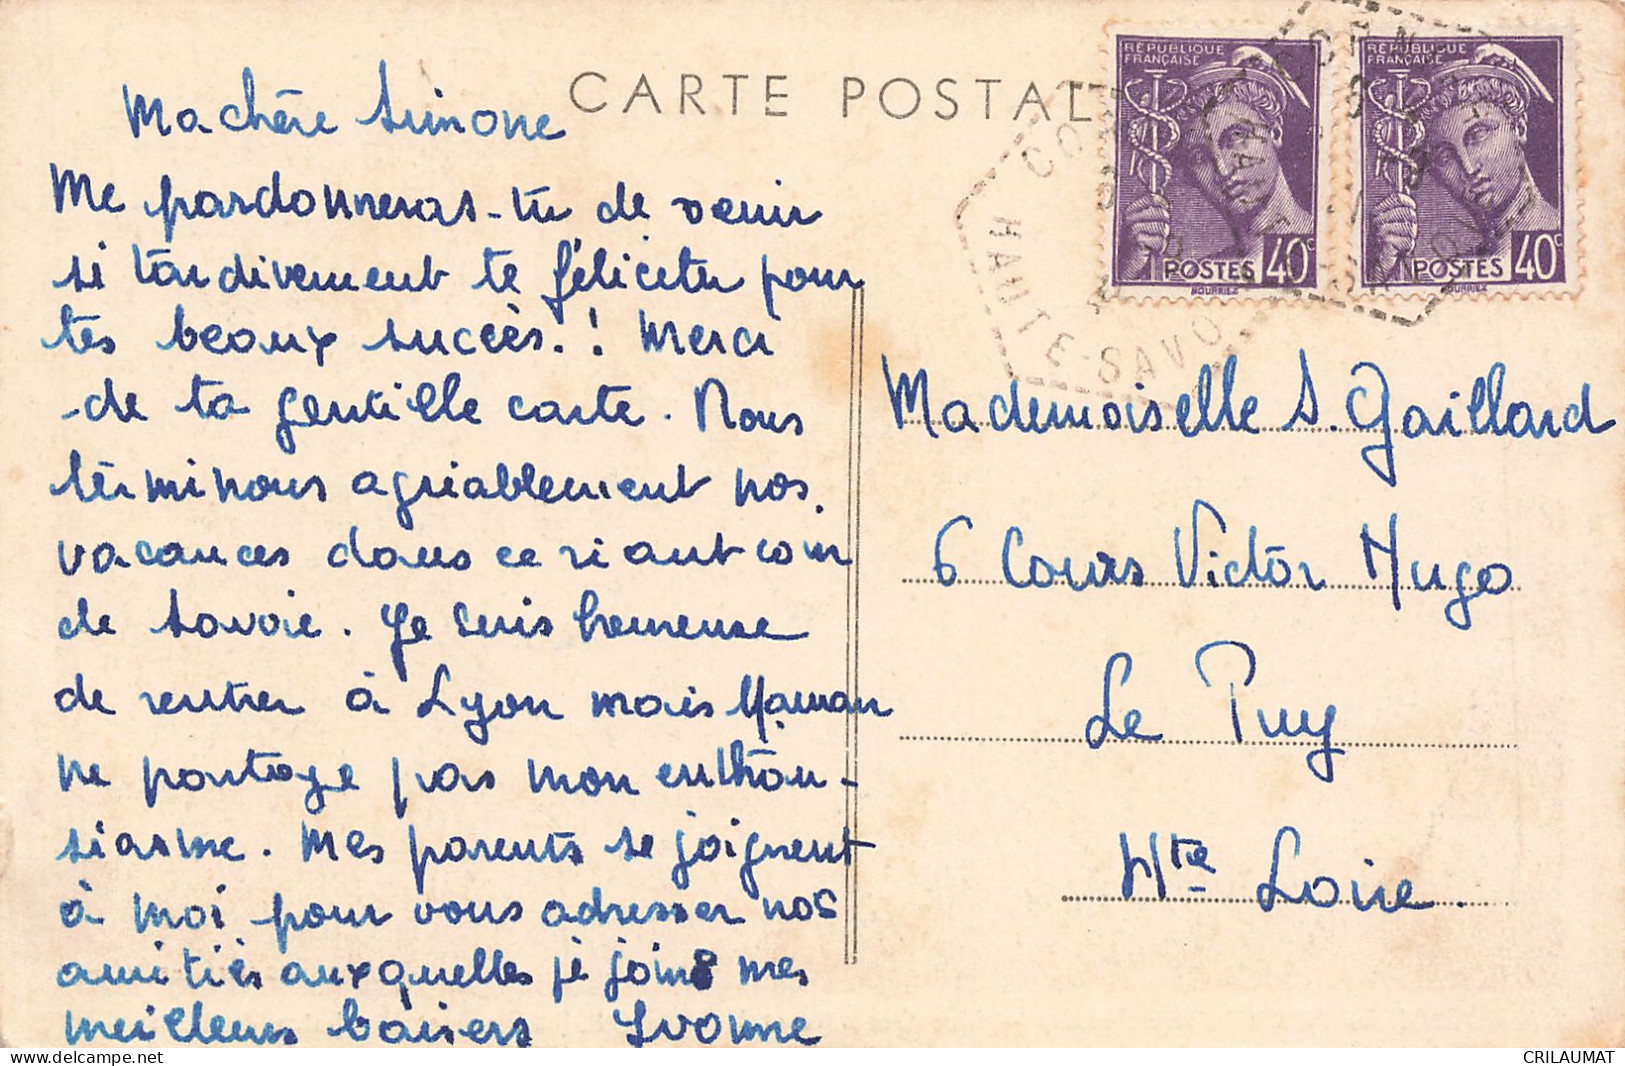 CARTE POSTAL
RÉPUBLIQUE
FRANÇAISE
POSTES 40c
RÉPUBLIQUE
FRANÇAISE
POSTES 40c
HAUTE-SAVO
Ma chère Simone
Me pardonneras-tu de venir
si tardivement te féliciter pour
tes beaux succès.! Merci
de ta gentille carte. Nous
terminons agréablement nos
vacances dans ce riant coin
de Savoie. Je suis heureuse
de rentrer à Lyon mais Maman
ne partage pas mon enthou-
siasme. Mes parents se joignent
à moi pour vous adresser nos
amitiés auxquelles je joins mes
meilleurs baisers Yvonne
Mademoiselle S. Gaillard
6 Cours Victor Hugo
Le Puy
Hte Loire.
CRILAUMAT